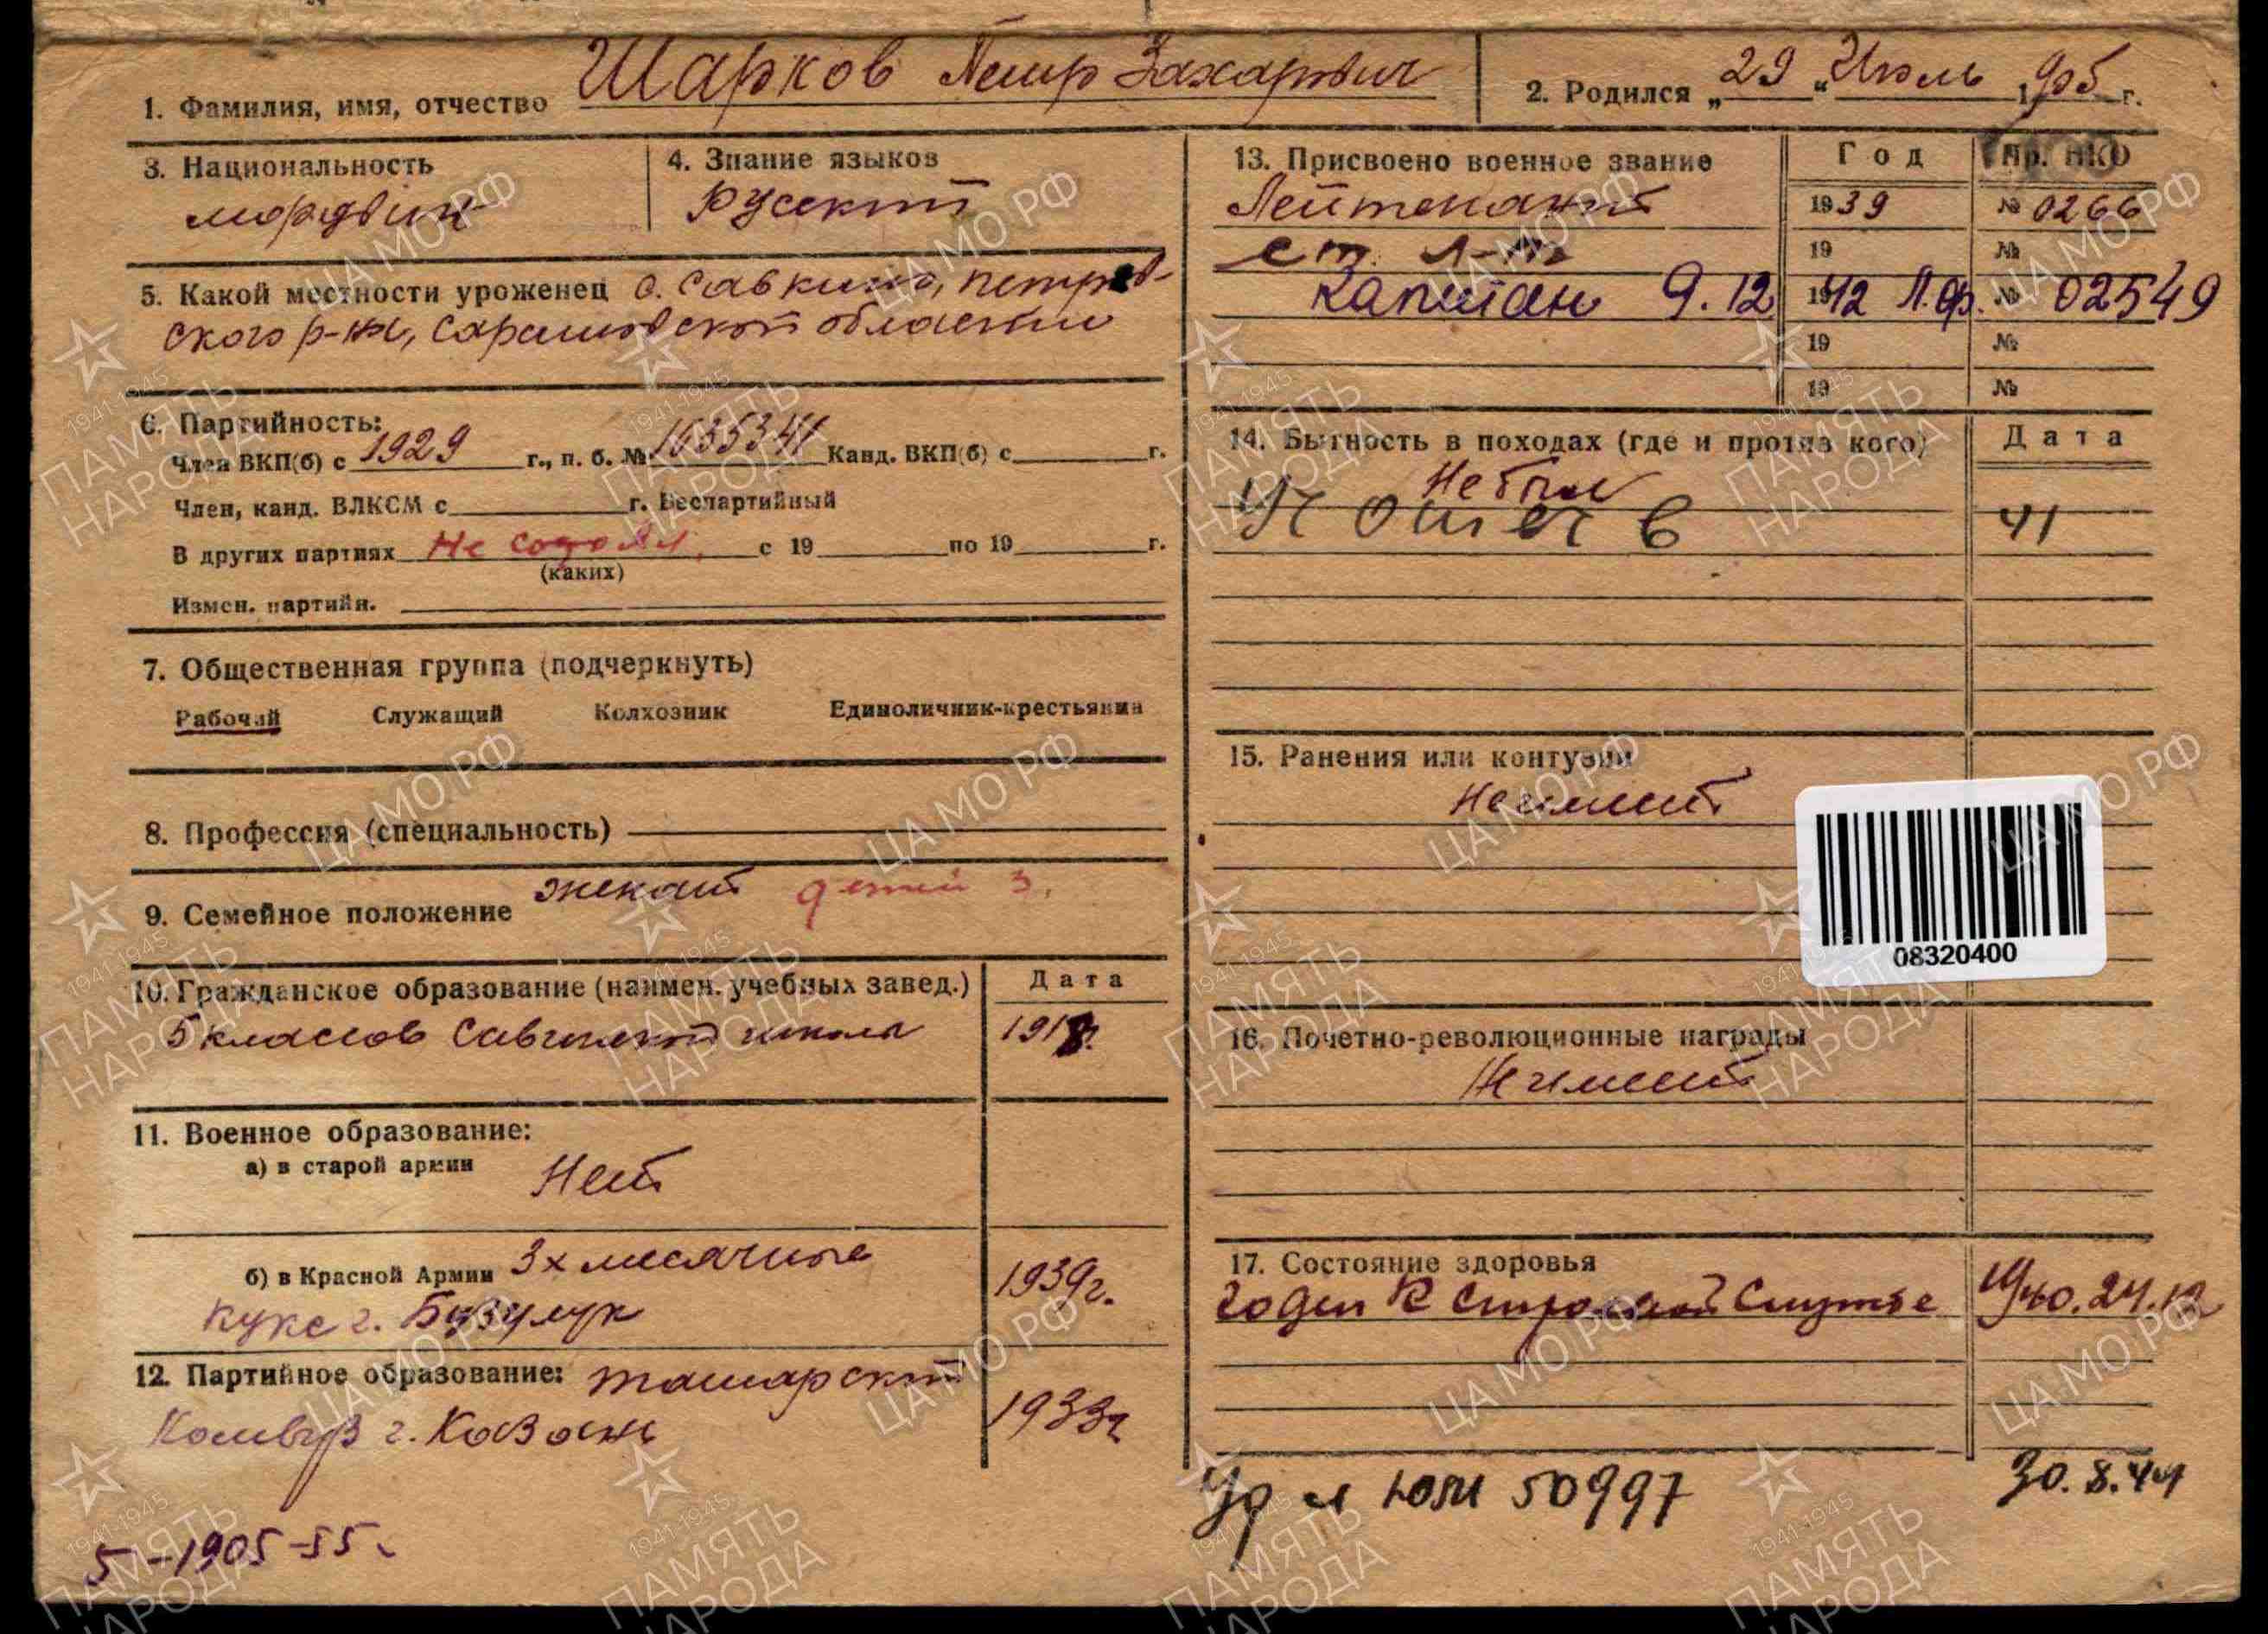 1. Фамилия, имя, отчество Шарков Петр Захарович
2. Родился „29“ Июль 1905 г.
3. Национальность
мордвин
4. Знание языков
Русский
5. Какой местности уроженец с. Савкино, Петров-
ского р-на, Саратовской области
6. Партийность:
Член ВКП(б) с 1929 г., п. б. № 1635341 Канд. ВКП(б) с г.
Член, канд. ВЛКСМ с г. Беспартийный
В других партиях Не состоял с 19 по 19 г.
(каких)
Измен. партийн.
7. Общественная группа (подчеркнуть)
Рабочий Служащий Колхозник Единоличник-крестьянин
8. Профессия (специальность)
9. Семейное положение женат детей 3.
10. Гражданское образование (наимен. учебных завед.) Дата
5 классов школы 1918
11. Военное образование:
а) в старой армии Нет
б) в Красной Армии 3х месячные 1939г.
Кукс г. Бузулук
12. Партийное образование: татарский
Комвуз г. Казань 1933г
5-1905-55
13. Присвоено военное звание Год Пр. НКО
Лейтенант 1939 № 0266
ст. л-нт 19 №
Капитан 9.12 1942 Л.ф. № 02549
19 №
19 №
14. Бытность в походах (где и против кого) Дата
Не был
41
15. Ранения или контузии
Не имеет
08320400
16. Почетно-революционные награды
Не имеет
17. Состояние здоровья
Годен к строевой службе 1940.24.12
Уд л ЮЛ 50997 30.8.44
ЦА МО РФ
1941-1945
ПАМЯТЬ
НАРОДА